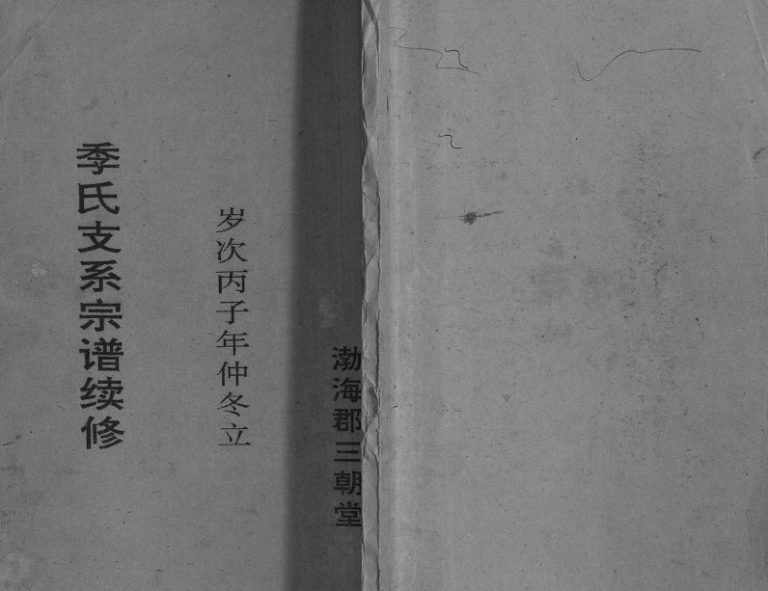 季氏支系宗谱续修
岁次丙子年仲冬立
渤海郡三朝堂